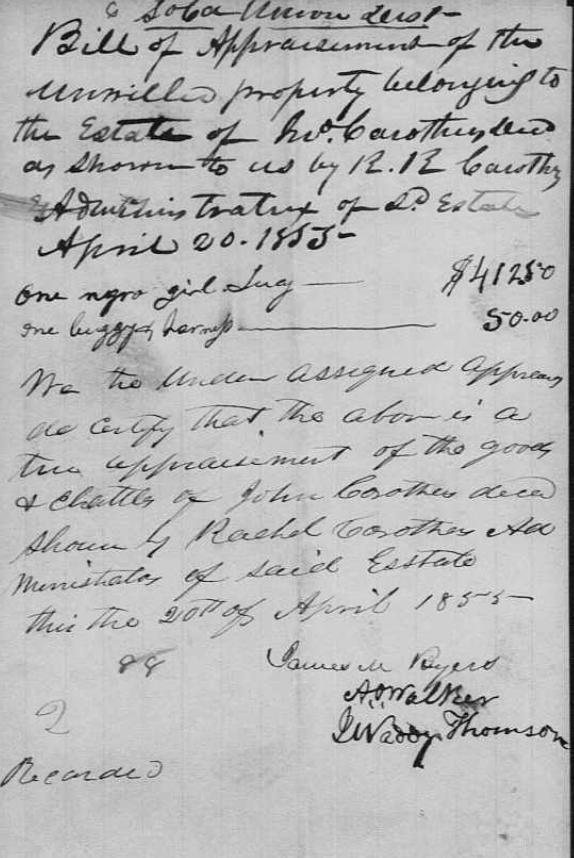 So Ca Union Dist
Bill of Appraisement of the
unwilled property belonging to
the Estate of Jno. Carothers decd
as shown to us by R. R Carothers
Administratrix of Sd Estate
April 20. 1855
One ngro girl Lucy $412.50
one buggy & harness 50.00
We the Under assigned apprais
do certify that the abov is a
true appraisement of the goods
& chattles of John Corothers decd
Shown by Rachel Corothers Ad
ministrator of said Esstate
this the 20th of April 1855
James M Byers
A Walker
Waddy Thomson
2
Recorded